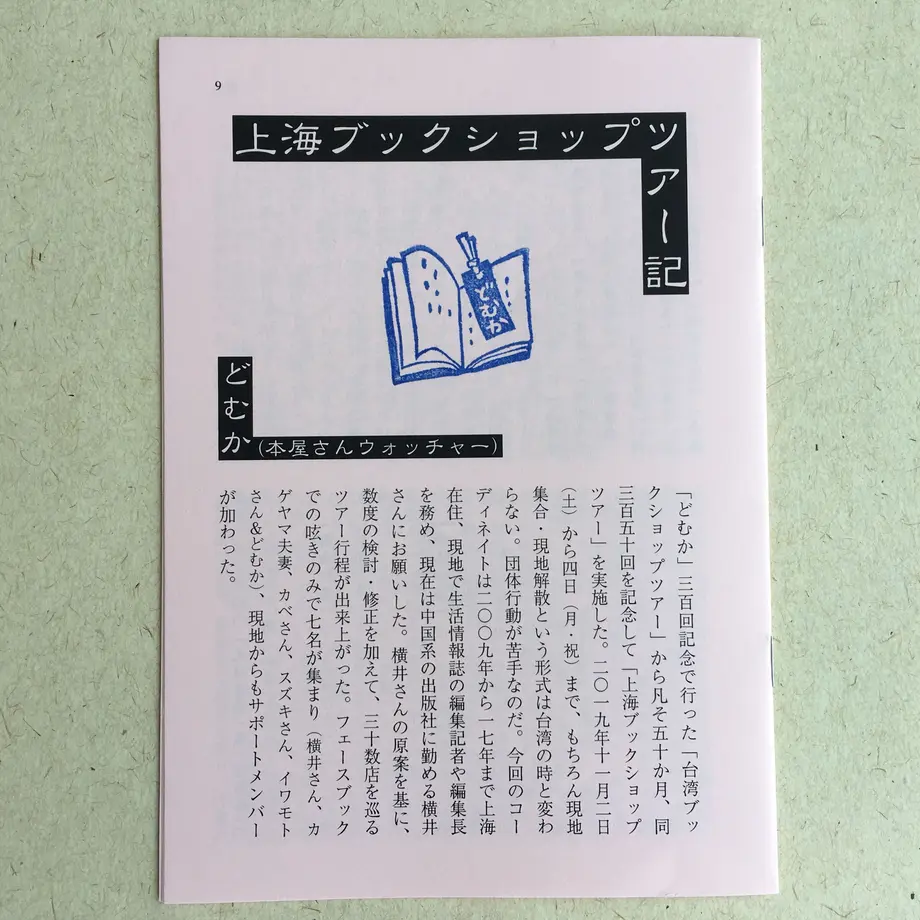 9
上海ブックショップツアー記
どむか
どむか
(本屋さんウォッチャー)
「どむか」三百回記念で行った「台湾ブッ
クショップツアー」から凡そ五十か月、同
三百五十回を記念して「上海ブックショップ
ツアー」を実施した。二〇一九年十一月二日
(土)から四日(月・祝)まで、もちろん現地
集合・現地解散という形式は台湾の時と変わ
らない。団体行動が苦手なのだ。今回のコー
ディネイトは二〇〇九年から一七年まで上海
在住、現地で生活情報誌の編集記者や編集長
を務め、現在は中国系の出版社に勤める横井
さんにお願いした。横井さんの原案を基に、
数度の検討・修正を加えて、三十数店を巡る
ツアー行程が出来上がった。フェースブック
での呟きのみで七名が集まり(横井さん、カ
ゲヤマ夫妻、カベさん、スズキさん、イワモト
さん&どむか)、現地からもサポートメンバー
が加わった。